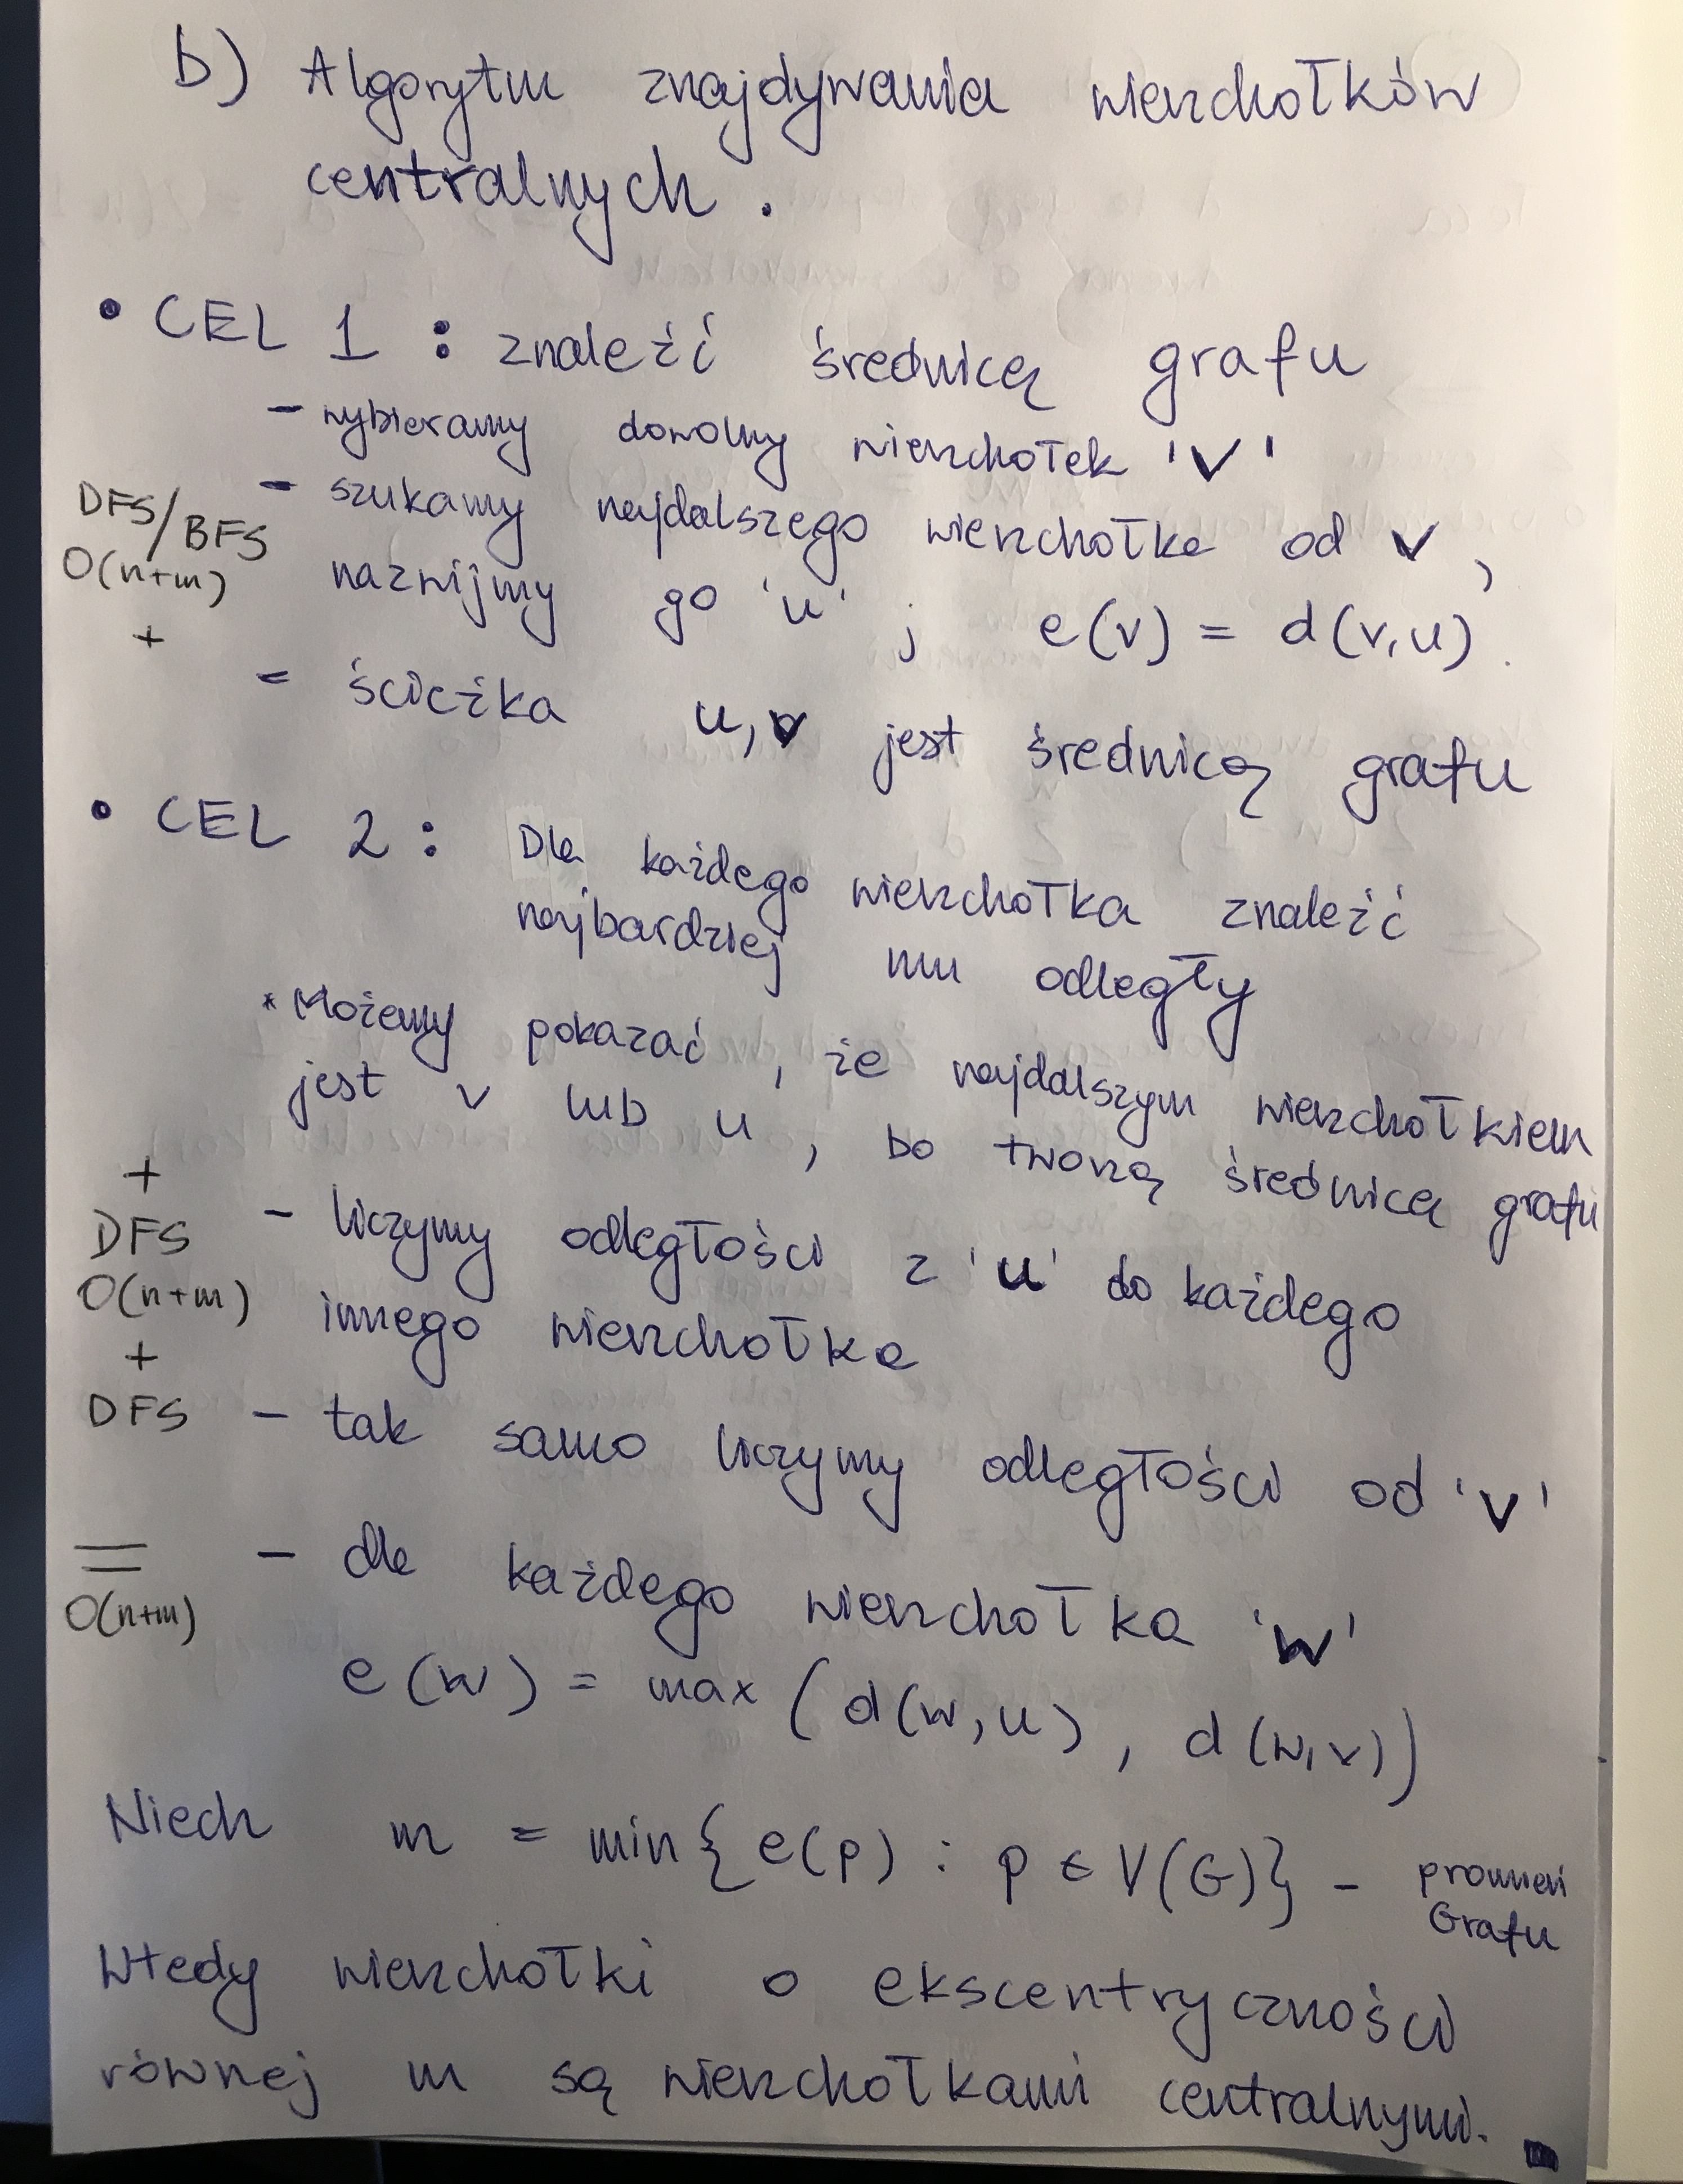 b) Algorytm znajdywania wierzchołków
centralnych.
• CEL 1 : znaleźć średnicę grafu
- wybieramy dowolny wierzchołek 'v'
- szukamy najdalszego wierzchołka od v,
DFS/BFS
O(n+m)
nazwijmy go 'u' ; e(v) = d(v,u).
+
- ścieżka u,v jest średnicą grafu
• CEL 2 : Dla każdego wierzchołka znaleźć
najbardziej mu odległy
* Możemy pokazać, że najdalszym wierzchołkiem
jest v lub u, bo tworzą średnicę grafu
+
DFS
O(n+m)
- liczymy odległości z 'u' do każdego
innego wierzchołka
+
DFS
- tak samo liczymy odległości od 'v'
=
O(n+m)
- dla każdego wierzchołka 'w'
e(w) = max(d(w,u), d(w,v))
Niech m = min{e(p) : p ∈ V(G)} - promień
Grafu
Wtedy wierzchołki o ekscentryczności
równej m są wierzchołkami centralnymi.